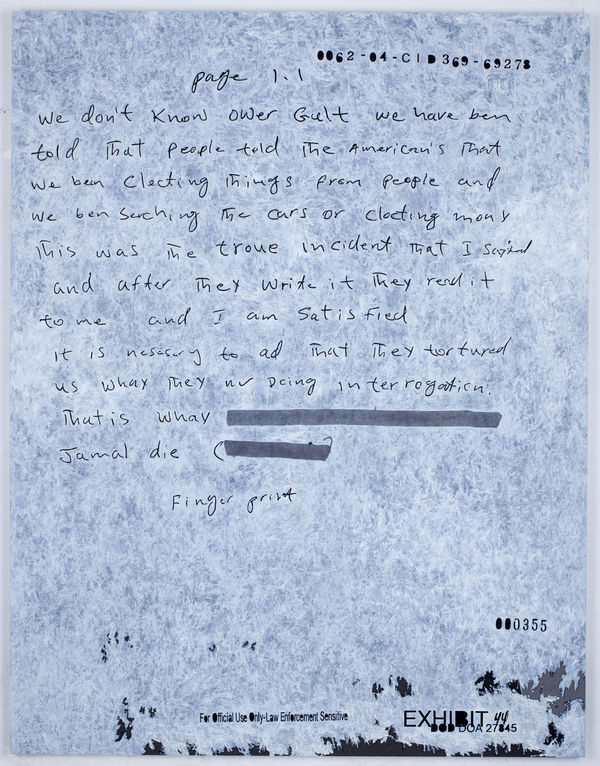 0062-04-CID369-69278
page 1.1
we don't know ower Gult we have ben
told That people told The American's That
we ben Clecting Things from people and
we ben Serching The cars or Clocting mony
This was The troue incident That I
and after They write it They read it
to me and I am Satisfied
it is nesasery to ad That They tortured
us whay They Doing interrogation.
That is whay
Jamal die (
Finger print
000355
For Official Use Only-Law Enforcement Sensitive
EXHIBIT 44
DOD DOA 27845